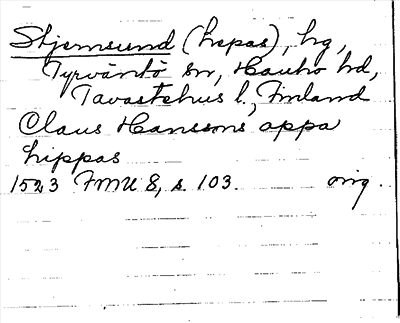 Stjernsund (hspas), hg,
Tyrväntö sn, Hauho hd,
Tavastehus l., Finland
Claus Hanssons oppa
hippas
1523 FMU 8, s. 103. orig.